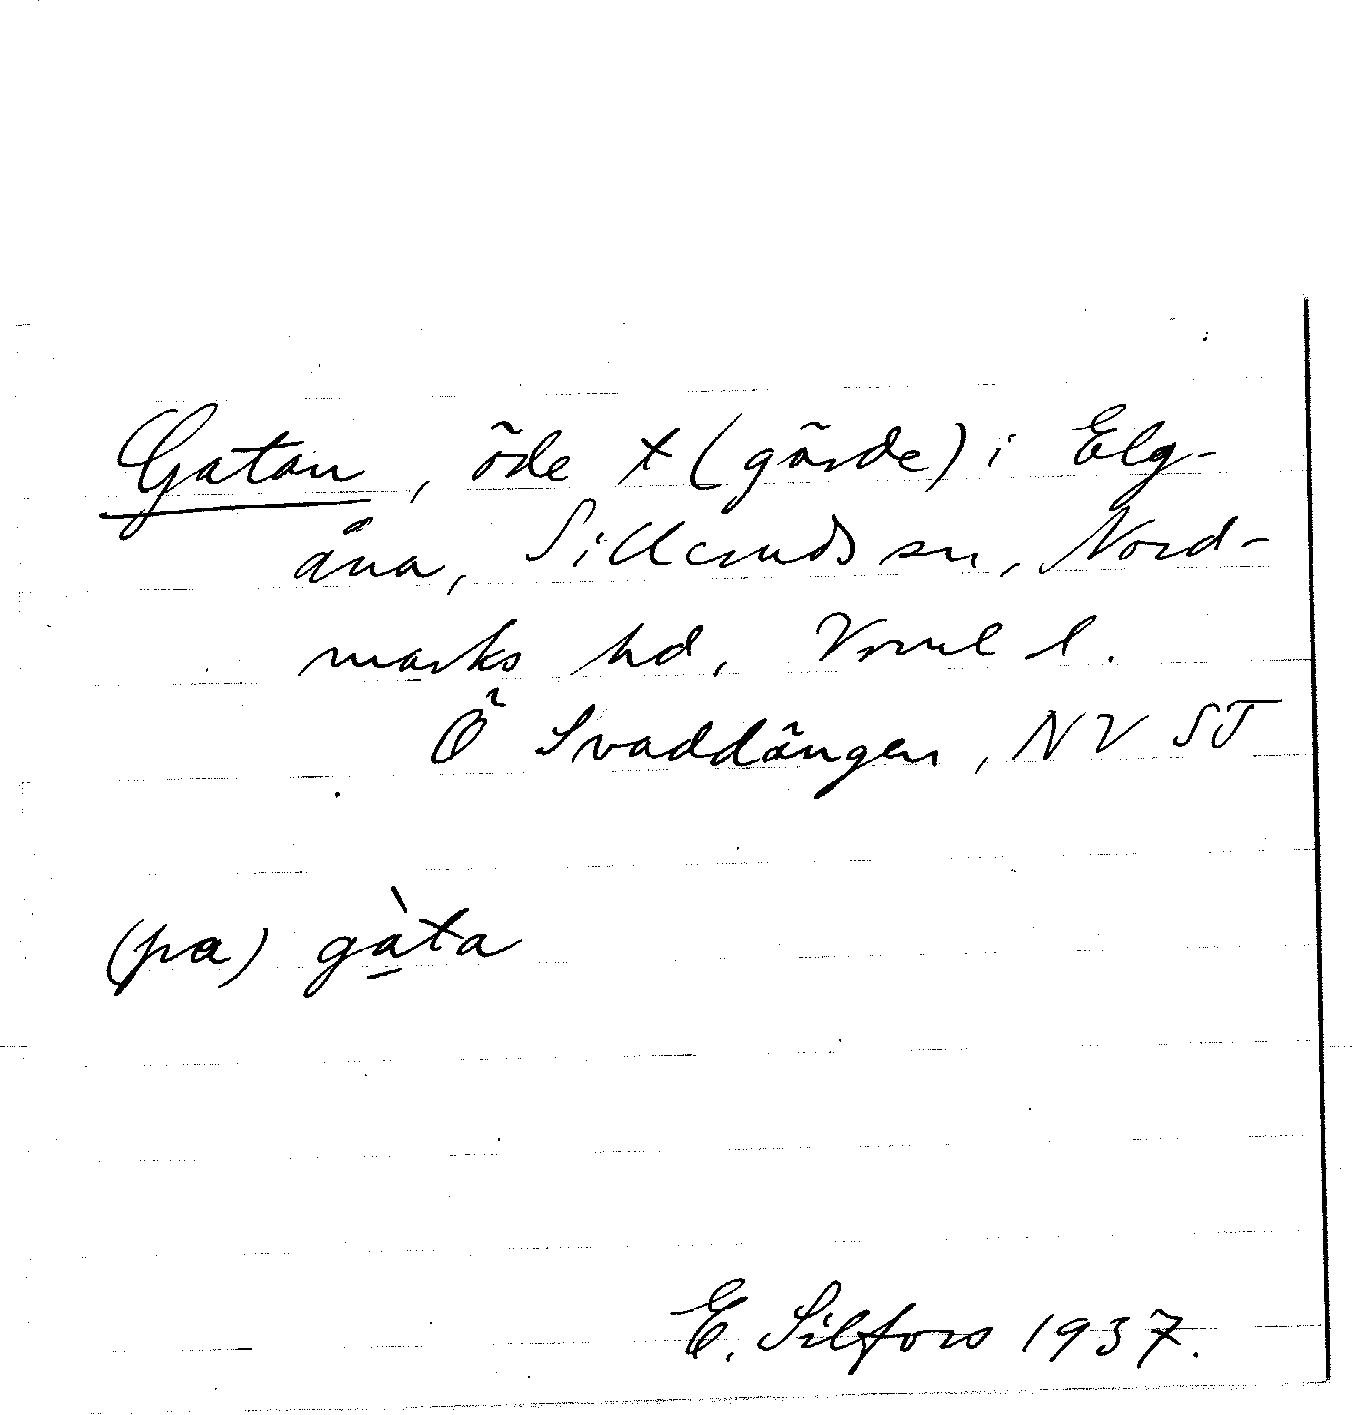 Gatan, öde + (gärde) i Elg-
åna, Silleruds sn, Nord-
marks hd, Verml l.
Ö Svaddängen, NV ST
(pa) gàta
E. Silfors 1937.